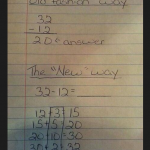 Old Fashion Way
32
-12
20 = answer
The "New" Way
32-12=
12+3=15
15+5=20
20+10=30
30+2=32